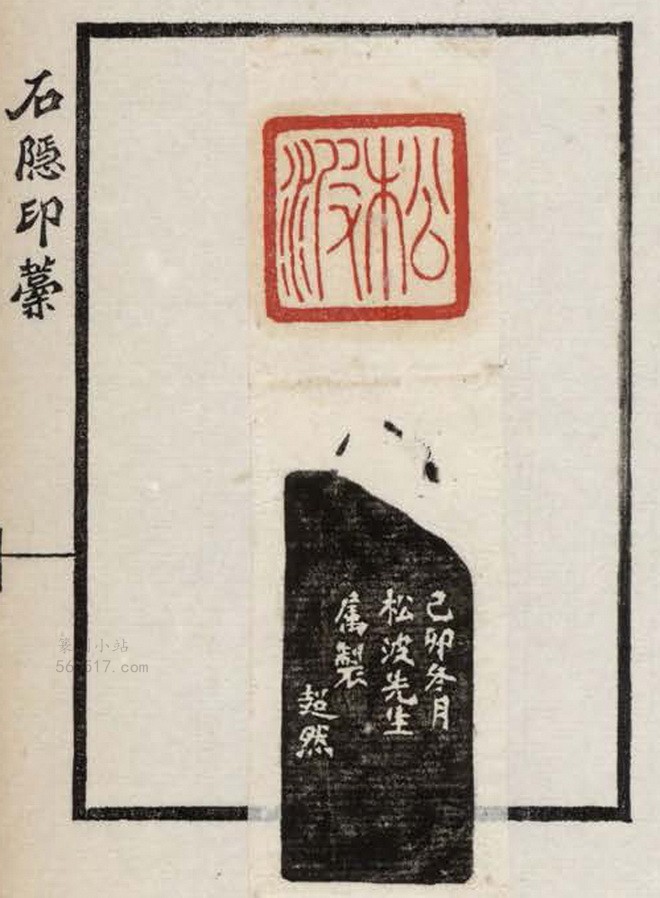 石隱印藁
松波
己卯冬月
松波先生
属製
超然
篆刻小站